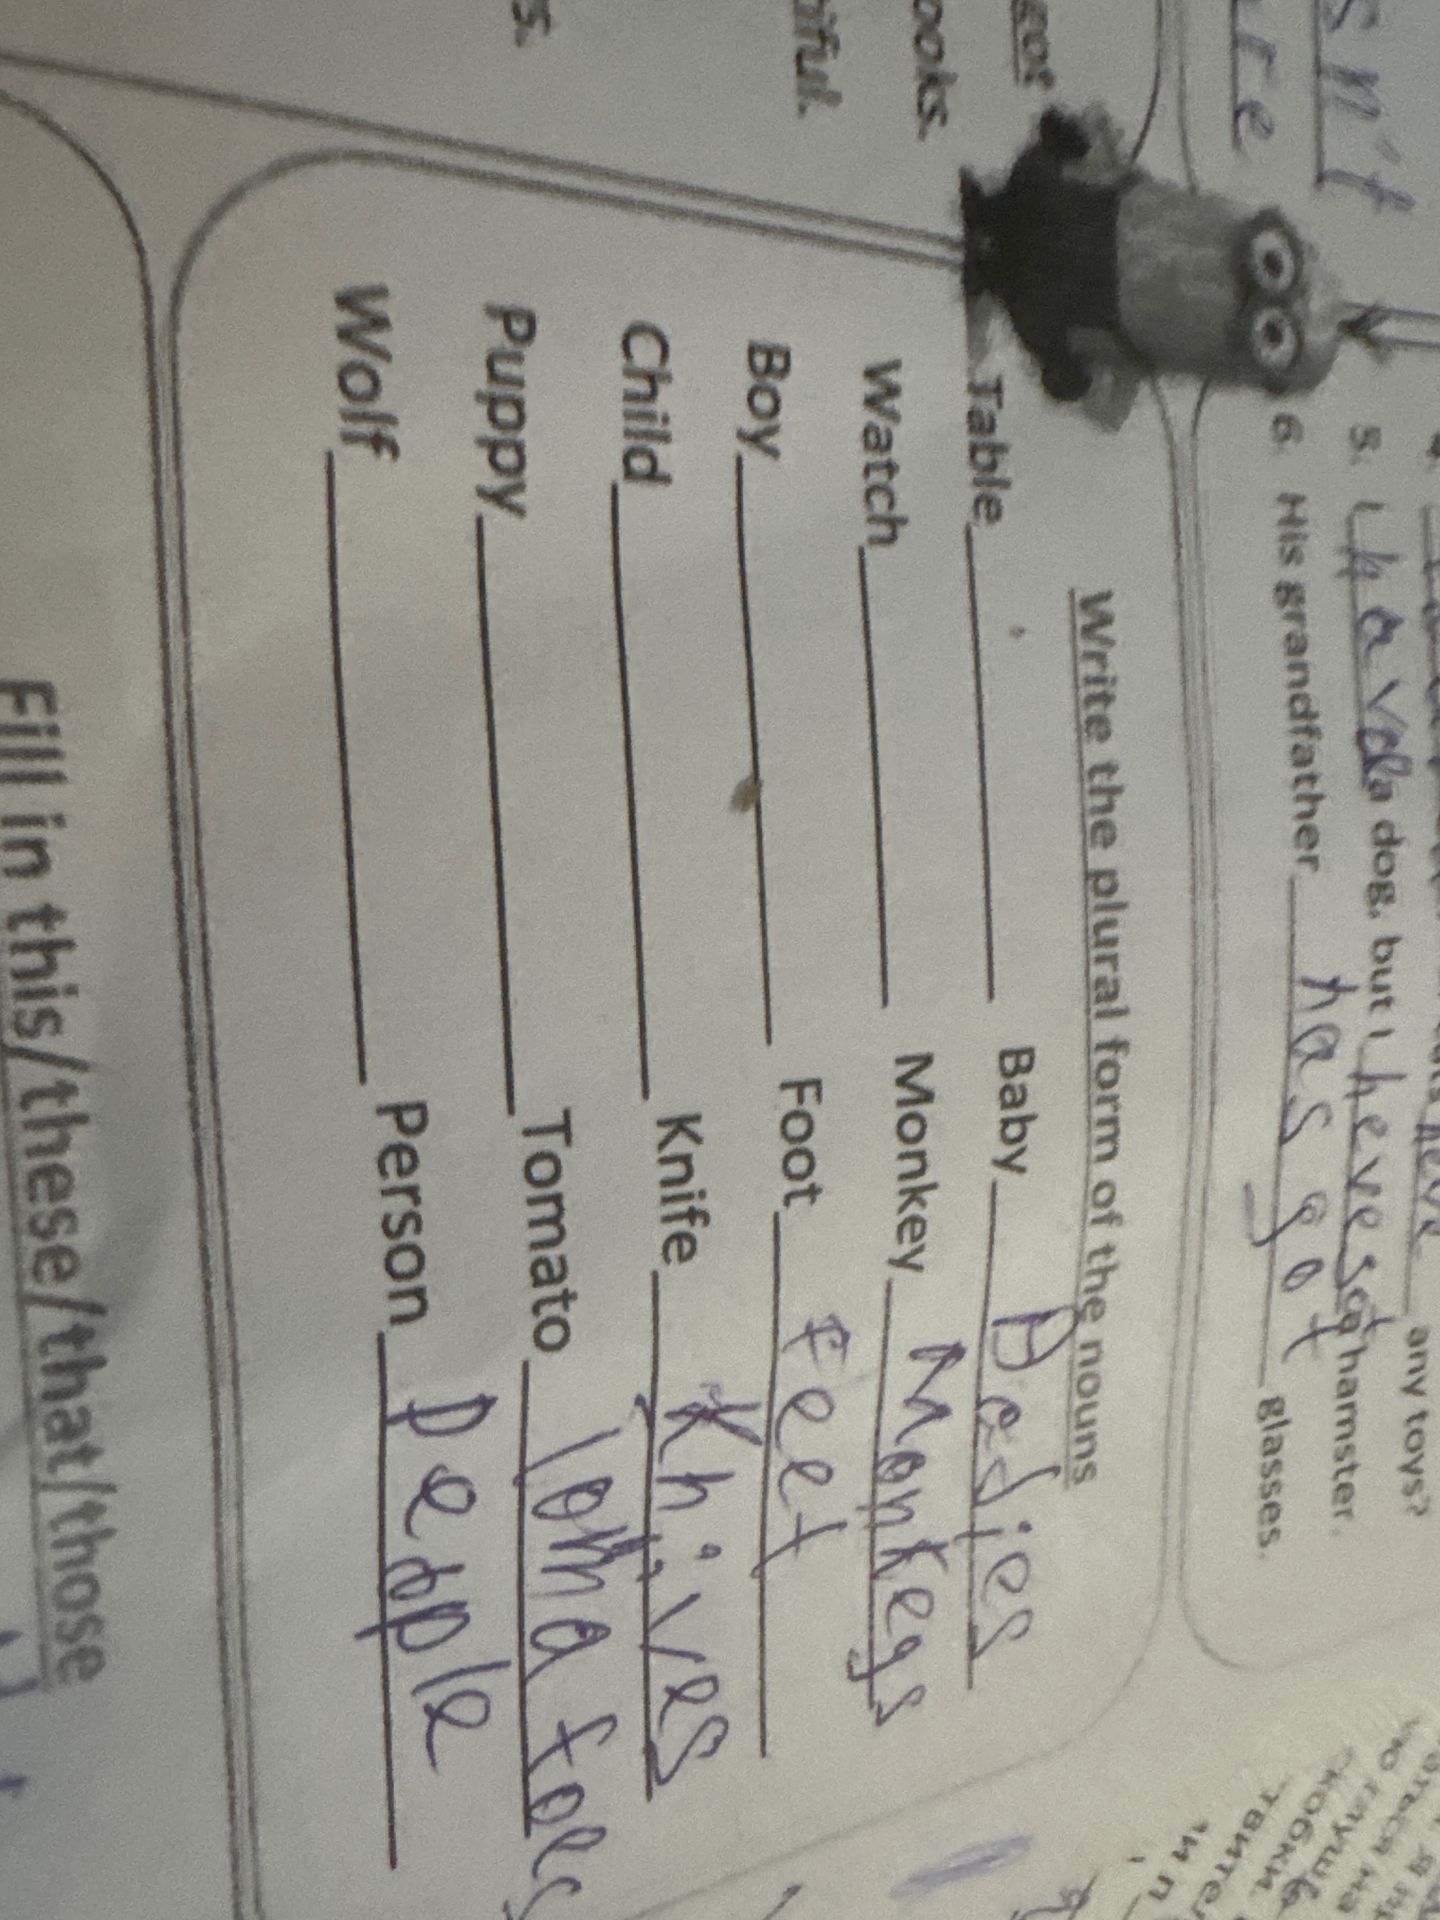 got
ooks.
iful.
s.
sn't
re
5. I haveda dog, but I hevegot a hamster.
any toys?
6. His grandfather has got glasses.
Write the plural form of the nouns
Table Baby Badies
Watch Monkey Monkeys
Boy Foot Feet
Child Knife Knives
Puppy Tomato Tomatoes
Wolf Person People
Fill in this/these/that/those